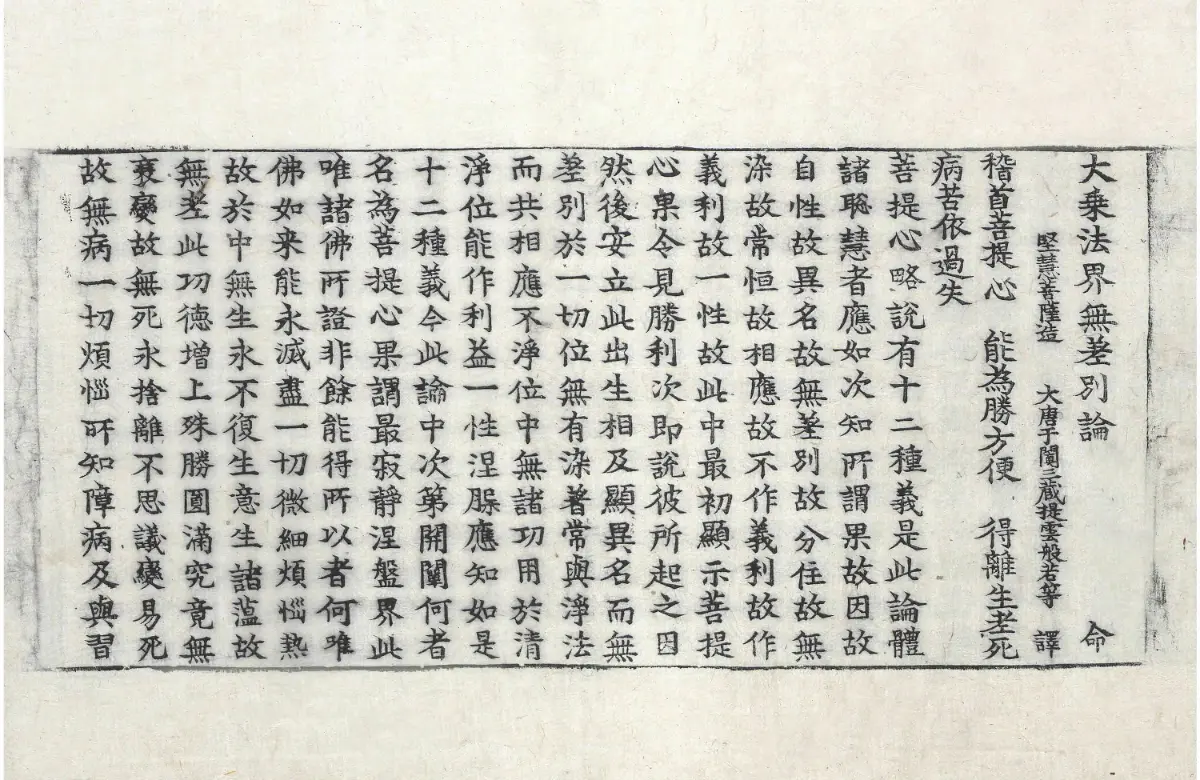 大乗法界無差別論 命
堅慧菩薩造 大唐于闐三藏提雲般若等 譯
稽首菩提心 能為勝方便 得離生老死
病苦依過失
菩提心略說有十二種義是此論體
諸聡慧者應如次知所謂果故因故
自性故異名故無差別故分住故無
染故常恒故相應故不作義利故作
義利故一性故此中最初顯示菩提
心果令見勝利次即說彼所起之因
然後安立此出生相及顯異名而無
差別於一切位無有染著常與淨法
而共相應不淨位中無諸功用於清
淨位能作利益一性涅槃應知如是
十二種義今此論中次第開闡何者
名為菩提心果謂最寂靜涅盤界此
唯諸佛所證非餘能得所以者何唯
佛如来能永滅盡一切微細煩惱熱
故於中無生永不復生意生諸薀故
無老此功德增上殊勝圓滿究竟無
衰變故無死永捨離不思議變易死
故無病一切煩惱所知障病及與習